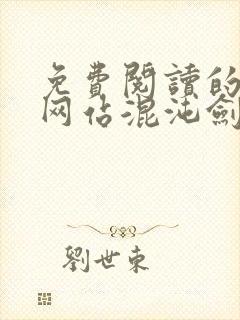 免費閱讀的
网站混沌劍
劉世東